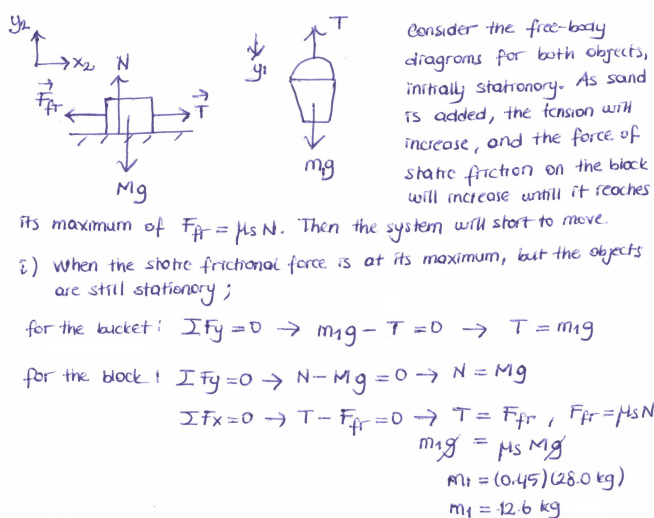 y2
x2
N
F⃗fr
T⃗
Mg
y1
T
m1g
Consider the free-body
diagrams for both objects,
initially stationary. As sand
is added, the tension will
increase, and the force of
static friction on the block
will increase untill it reaches
its maximum of Ffr = μsN. Then the system will start to move.
i) When the static frictional force is at its maximum, but the objects
are still stationary;
for the bucket: ΣFy = 0 → m1g - T = 0 → T = m1g
for the block: ΣFy = 0 → N - Mg = 0 → N = Mg
ΣFx = 0 → T - Ffr = 0 → T = Ffr, Ffr = μsN
m1g = μs Mg
m1 = (0.45)(28.0 kg)
m1 = 12.6 kg